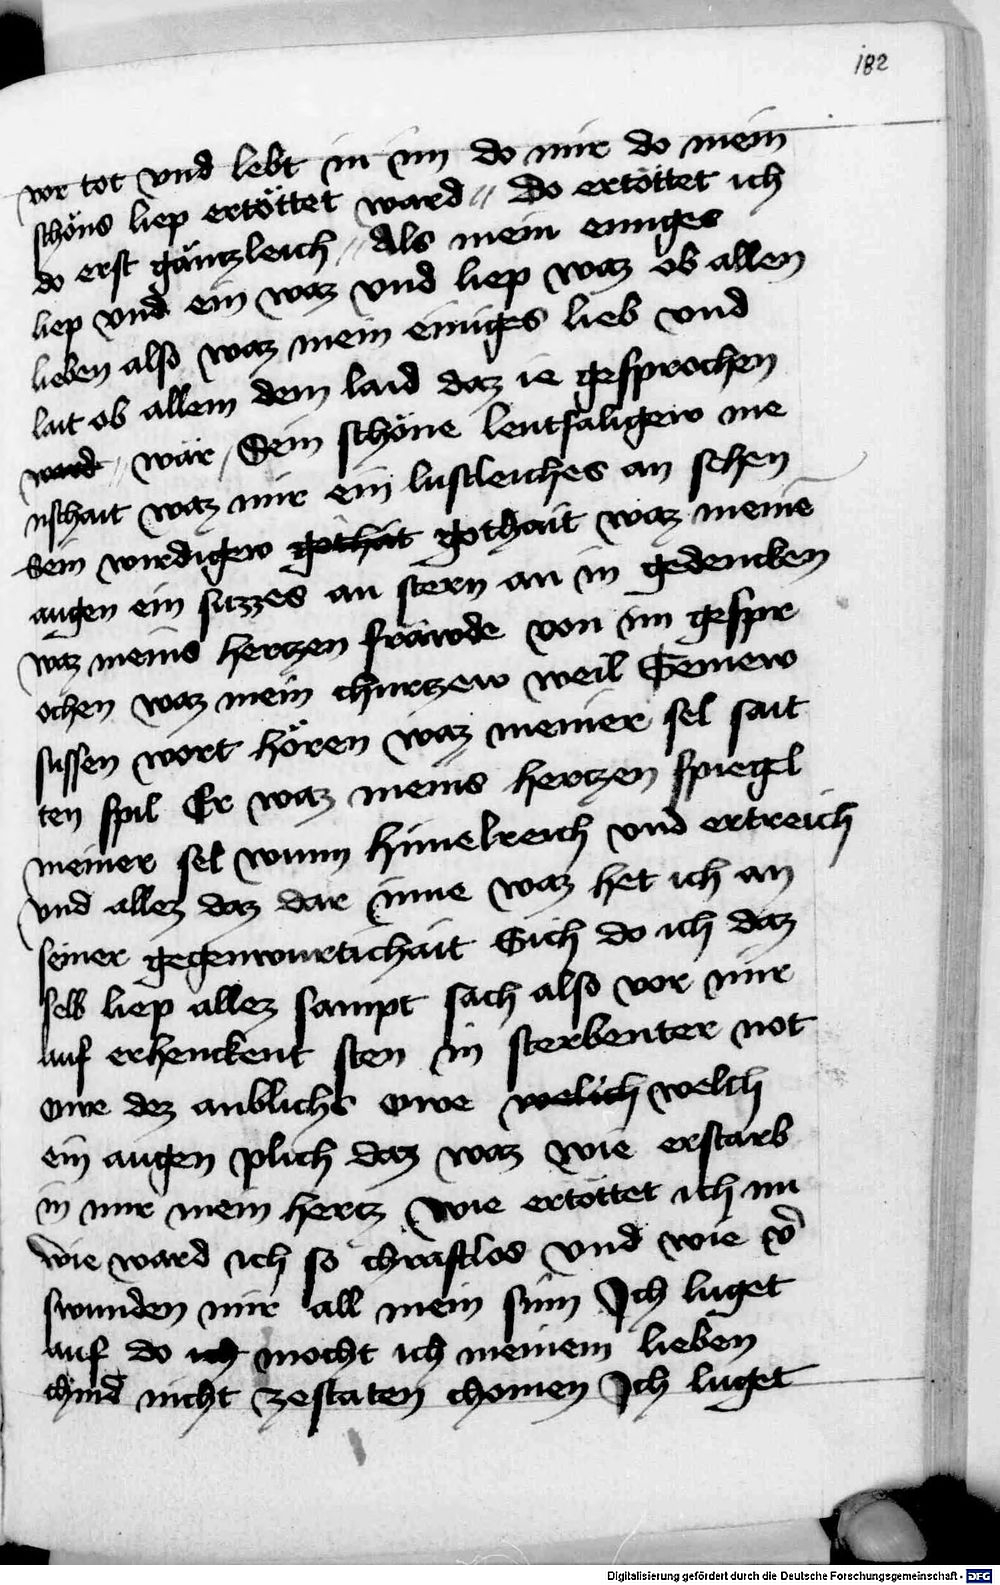 182
vor tot vnd lebt in im do mir do mein
schöns liep ertöttet ward // Do ertöttet ich
do erst gäntzleich // Als mein einiges
liep vnd ein waz vnd liep waz ob allen
lieben also waz mein einiges lieb vnd
lait ob allem dem laid daz ie gesprochen
ward // wär / Sein schöne leutsäligew me
nschait waz mir ein lustleiches an sehen
Sein wirdigew gothait gothait waz meinē
augen ein süzzes an stern an in gedencken
waz meins hertzen fräwde von im gespr
ochen waz mein churtzew weil Seinew
süssen wort hören waz meiner sel sait
ten spil Er waz meins hertzen spiegel
meiner sel wunn himelreich vnd ertreich
vnd allez daz dar inne waz het ich an
seiner gegenwurtichait Sich do ich daz
selb liep allez sampt sach also vor mir
auf erhenckent sten in sterbenter not
owe dez anblichs owe welich welch
ein augen plich daz waz wie erstarb
in mir mein hertz wie ertöttet ich nu
wie ward ich so chraftlos vnd wie v̄
swunden mir all mein sinn Ich luget
auf do ich mocht ich meinem lieben
chind nicht zestaten chomen Ich luget
Digitalisierung gefördert durch die Deutsche Forschungsgemeinschaft - DFG